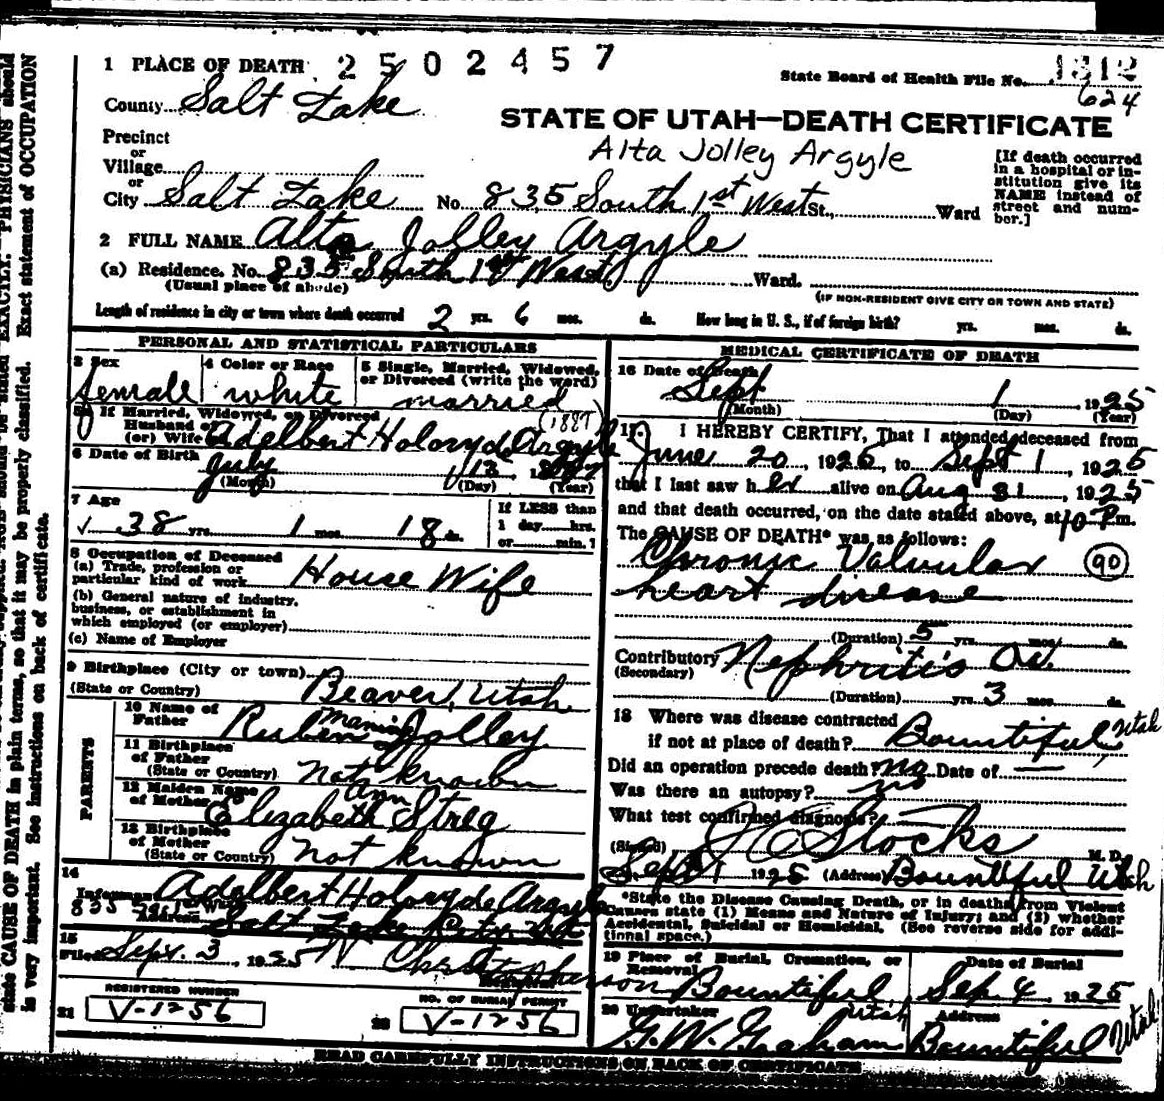 1 PLACE OF DEATH 2502457
State Board of Health File No. 1312
624
County Salt Lake
STATE OF UTAH—DEATH CERTIFICATE
Alta Jolley Argyle
Precinct
or
Village
or
City Salt Lake No. 835 South 1st West St., Ward
[If death occurred
in a hospital or in-
stitution give its
NAME instead of
street and num-
ber.]
2 FULL NAME Alta Jolley Argyle
(a) Residence. No. 835 South 1st West Ward.
(Usual place of abode)
(IF NON-RESIDENT GIVE CITY OR TOWN AND STATE)
Length of residence in city or town where death occurred 2 yrs. 6 mos. ds. How long in U. S., if of foreign birth? yrs. mos. ds.
PERSONAL AND STATISTICAL PARTICULARS
3 Sex
female
4 Color or Race
white
5 Single, Married, Widowed,
or Divorced (write the word)
married
5a If Married, Widowed, or Divorced
Husband of
(or) Wife Adelbert Holoryde Argyle
(1887)
6 Date of Birth July 13
(Month) (Day) (Year)
7 Age
38 yrs. 1 mos. 18 ds.
If LESS than
1 day hrs.
or min.?
8 Occupation of Deceased
(a) Trade, profession or
particular kind of work House Wife
(b) General nature of industry,
business, or establishment in
which employed (or employer)
(c) Name of Employer
9 Birthplace (City or town)
(State or Country) Beaver, Utah
PARENTS
10 Name of
Father Ruben Jolley
11 Birthplace
of Father
(State or Country) Not known
12 Maiden Name
of Mother Elizabeth Ann Streg
13 Birthplace
of Mother
(State or Country) Not known
14
Informant Adelbert Holoryde Argyle
Address Salt Lake
15
Filed Sept. 3, 1925 Christopherson
REGISTERED NUMBER
21 V-1256
NO. OF BURIAL PERMIT
22 V-1256
MEDICAL CERTIFICATE OF DEATH
16 Date of Death
Sept 1 1925
(Month) (Day) (Year)
17. I HEREBY CERTIFY, That I attended deceased from
June 20, 1925, to Sept 1, 1925
that I last saw her alive on Aug 31, 1925
and that death occurred, on the date stated above, at 10 P.m.
The CAUSE OF DEATH* was as follows:
Chronic Valvular 90
heart disease
(Duration) 5 yrs. mos. ds.
Contributory Nephritis
(Secondary)
(Duration) yrs. 3 mos. ds.
18 Where was disease contracted
if not at place of death? Bountiful, Utah
Did an operation precede death? no Date of —
Was there an autopsy? no
What test confirmed diagnosis?
(Signed) J C Stocks M. D.
Sept 1 1925 (Address) Bountiful Utah
*State the Disease Causing Death, or in deaths from Violent
Causes state (1) Means and Nature of Injury; and (2) whether
Accidental, Suicidal or Homicidal. (See reverse side for addi-
tional space.)
19 Place of Burial, Cremation, or
Removal Bountiful, Utah
Date of Burial
Sep. 4, 1925
20 Undertaker
G. W. Graham
Address
Bountiful Utah
READ CAREFULLY INSTRUCTIONS ON BACK OF CERTIFICATE
EXACTLY. PHYSICIANS should
state CAUSE OF DEATH in plain terms, so that it may be properly classified. Exact statement of OCCUPATION
is very important. See instructions on back of certificate.